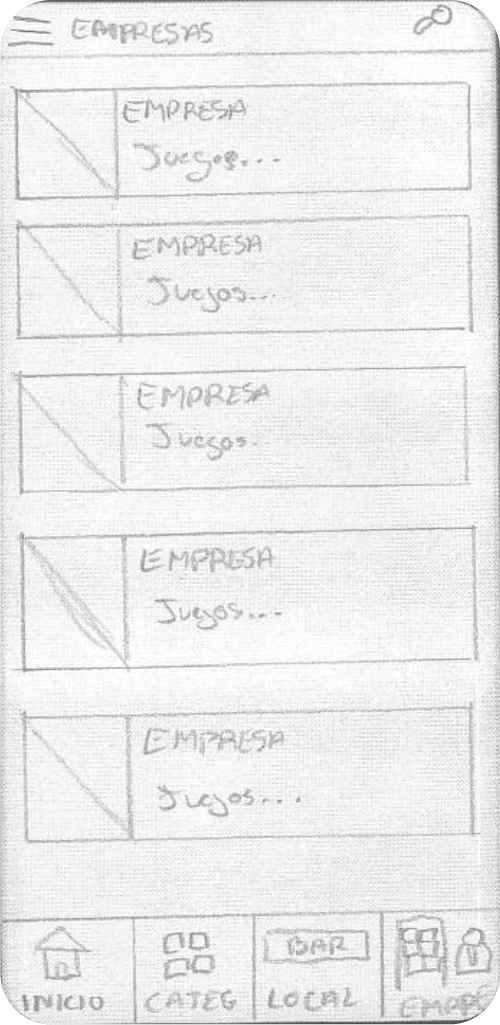 EMPRESAS
EMPRESA
Juegos...
EMPRESA
Juegos...
EMPRESA
Juegos..
EMPRESA
Juegos...
EMPRESA
Juegos...
BAR
INICIO CATEG LOCAL EMPRE